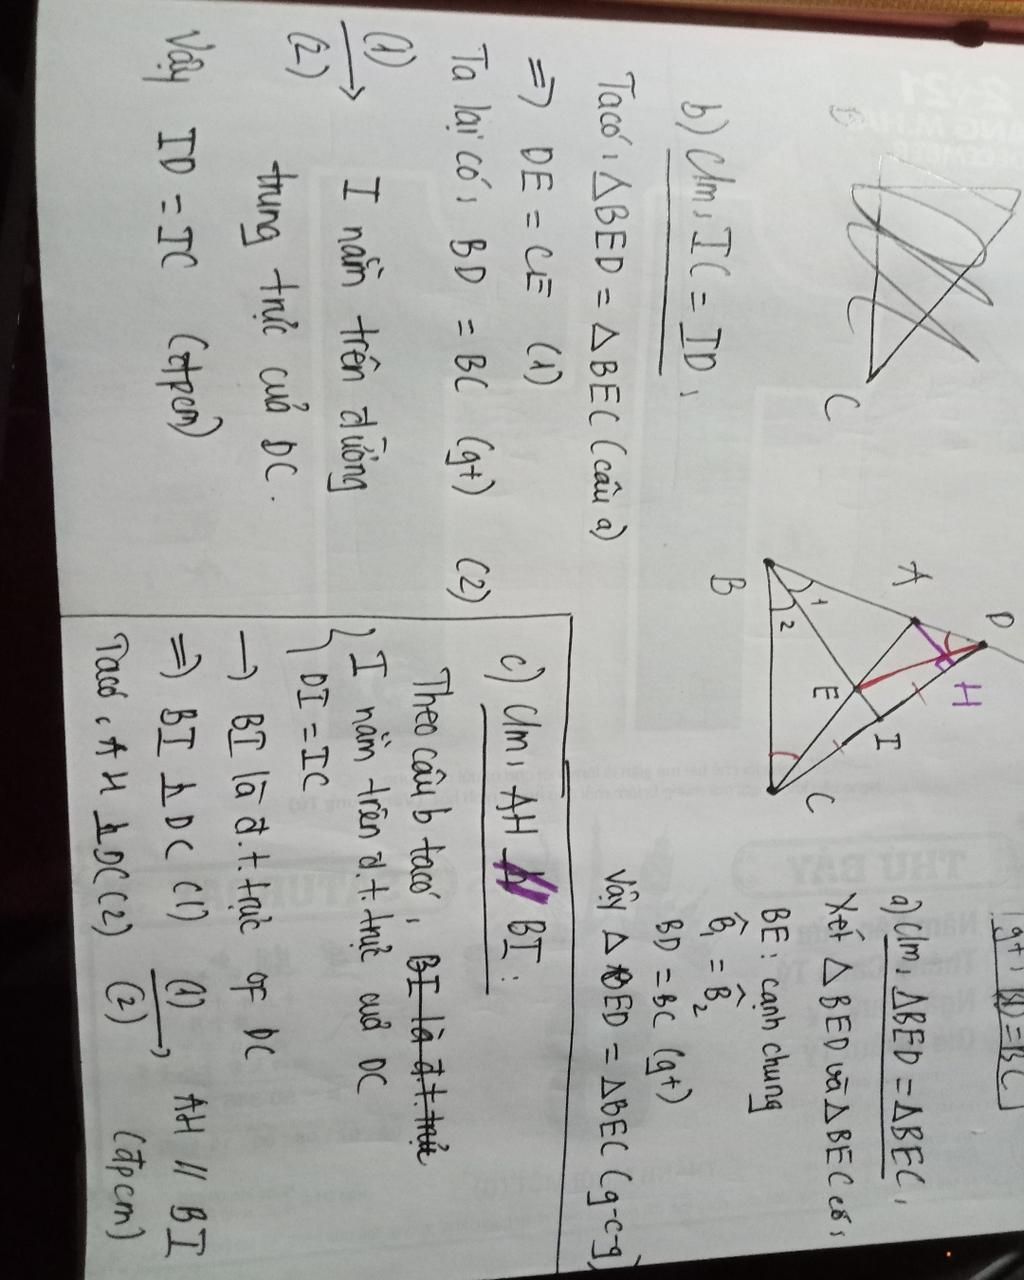 C
b) Cm: IC = ID:
Ta có: △BED = △BEC (câu a)
=> DE = CE (1)
Ta lại có: BD = BC (gt) (2)
(1)
(2) → I nằm trên đường
trung trực của DC.
Vậy ID = IC (đpcm)
D
A
H
I
E
B
C
1
2
gt: BD = BC
a) Cm: △BED = △BEC:
Xét △BED và △BEC có:
BE: cạnh chung
B̂₁ = B̂₂
BD = BC (gt)
Vậy △BED = △BEC (g-c-g)
c) Cm: AH // BI:
Theo câu b ta có: BI là đ.t.trực
I nằm trên đ.t.trực của DC
DI = IC
→ BI là đ.t.trực of DC
=> BI ⊥ DC (1)
Ta có: AH ⊥ DC (2)
(1)
(2) → AH // BI
(đpcm)
THỨ BẢY
SATURDAY